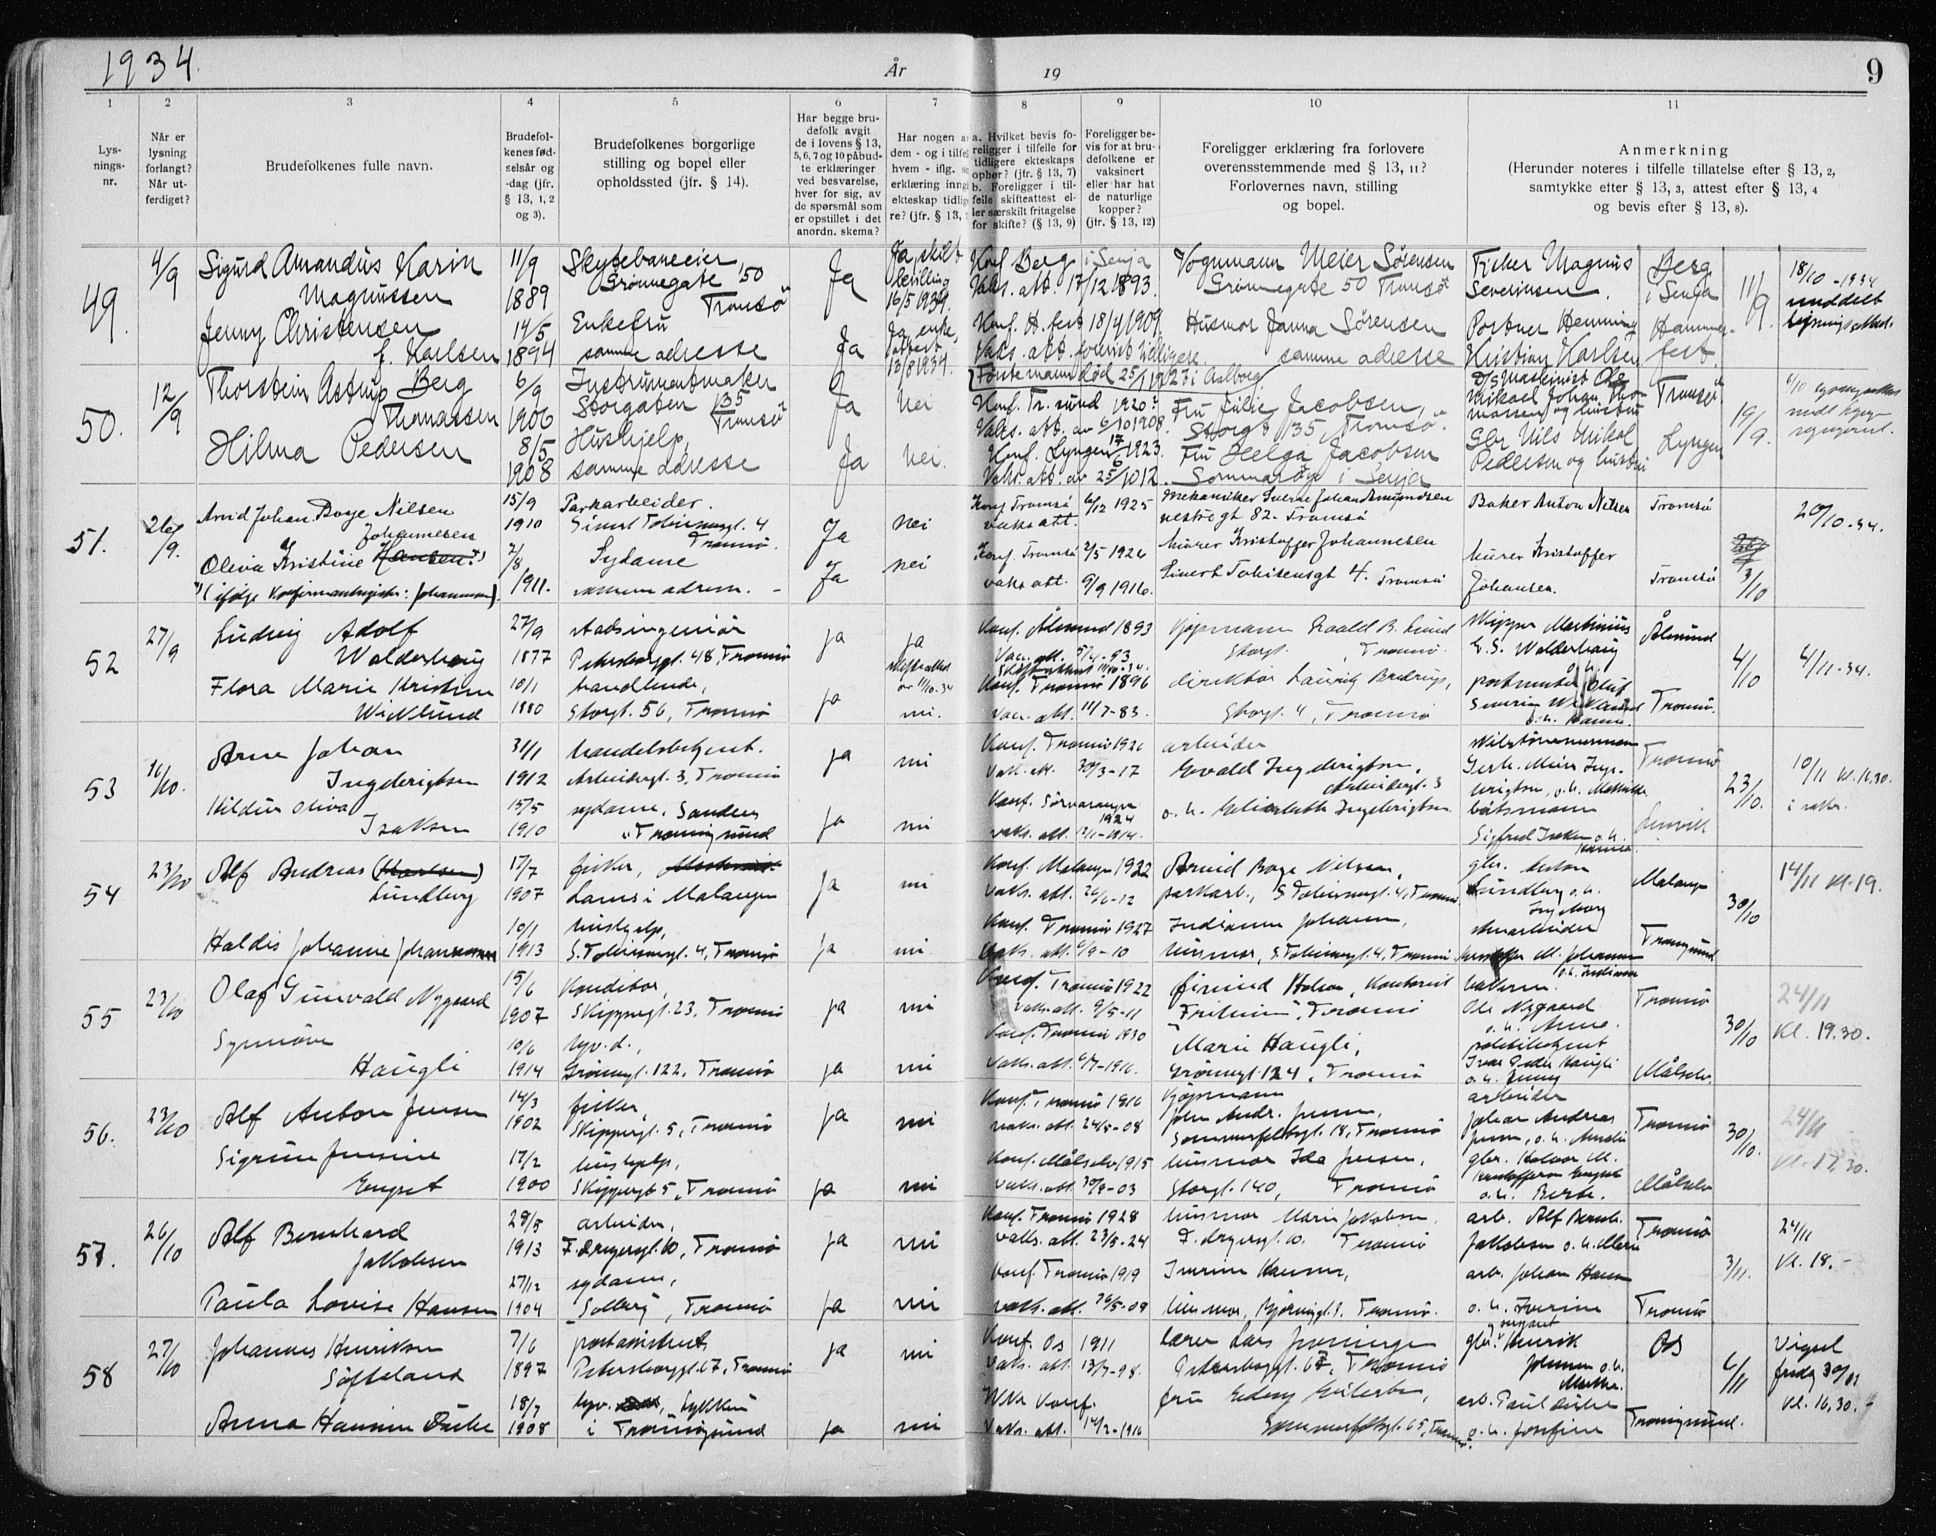 1934.
År
19
9
1
2
3
4
5
6
7
8
9
10
11
Lys-
nings-
nr.
Når er
lysning
forlangt?
Når ut-
ferdiget?
Brudefolkenes fulle navn.
Brudefol-
kenes fød-
selsår og
-dag (jfr.
§ 13, 1, 2
og 3).
Brudefolkenes borgerlige
stilling og bopel eller
opholdssted (jfr. § 14).
Har begge bru-
defolk avgit
de i lovens § 13,
5, 6, 7 og 10 påbud-
te erklæringer
ved besvarelse,
hver for sig, av
de spørsmål som
er opstillet i det
anordn. skema?
Har nogen a
dem - og i tilfel
hvem - iflg. s
erklæring inng
ekteskap tidlig
re? (jfr. § 13,
a. Hvilket bevis fo-
religger i tilfelle for
tidligere ekteskaps
ophør? (jfr. § 13, 7)
b. Foreligger i til-
felle skifteattest el-
ler særskilt fritagelse
for skifte? (§ 13, 9)
Foreligger be-
vis for at bru-
defolkene er
vaksinert
eller har hat
de naturlige
kopper?
(jfr. § 13, 12)
Foreligger erklæring fra forlovere
overensstemmende med § 13, 11?
Forlovernes navn, stilling
og bopel.
Anmerkning
(Herunder noteres i tilfelle tillatelse efter § 13, 2,
samtykke efter § 13, 3, attest efter § 13, 4
og bevis efter § 13, 8).
49.
4/9
Sigurd Amandus Karin
Magnussen
11/9
1889
Skytebaneeier
Grønnegate 50
Tromsö
Ja
Ja, skilt
bevilling
16/5 1934.
Konf. Berg i Senja
Vaks. att. 17/12 1893.
Vognmann Meier Sørensen
Grønnegate 50 Tromsö
Fisker Magnus
Severinsen.
Berg
i Senja
11/9.
18/10 - 1934
Jenny Christensen
f. Karlsen
14/5
1894
Enkefru
samme adresse
Ja
Ja, enke,
13/8 1934.
Konf. H.fest 18/4 1909.
Vaks. att. forevist tidligere.
Husmor Janna Sørensen
samme adresse
Portner Henning
Kristian Karlsen
Hammer-
fest.
Første mann död 25/1 1927 i Aalborg
50.
12/9
Thorstein Astrup Berg
Thomassen
6/9
1906
Instrumentmaker
Storgaten 135
Tromsö
Ja
Nei
Konf. Tr.sund 1920?
Vaks. att. av 6/10 1908.
Fru Julie Jacobsen,
Storgt 135 Tromsø.
D/S Maskinist Ole
Mikael Johan Tho-
massen og hustru
Tromsö
19/9.
Hilma Pedersen
8/5
1908
Hushjelp,
samme adresse
Ja
Nei.
Konf. Lyngen 17/6 1923.
Vaks. att. av 25/10 12.
Fru Helga Jacobsen
Sommarøy i Senja
Gbr Nils Mikal
Pedersen og hustru
Lyngen
51.
26/9.
Arvid Johan Boye Nilsen
15/9
1910
Parkarbeider.
Einert Tobiesensgt. 4
Tromsø.
Ja
Nei
Konf. Tromsö 6/12 1925
vaks att.
Mekaniker Sverre Johan Amundsen
vestregt 82. Tromsö
Baker Anton Nilsen
Tromsö
20/10-34.
Johannesen
Oliva Kristine Hansen?
(ifølge Konfirmantregister: Johannesen).
2/8
1911.
Sydame
samme adresse.
Ja
Nei
Konf. Tromsö 2/5 1926
vaks att. 9/9 1916.
Murer Kristoffer Johannesen
Einert Tobiesensgt 4. Tromsö
Murer Kristoffer
Johansen.
Tromsö
3/10
52
27/9
Ludvig Adolf
Walderhaug
27/9
1877
Stadsingeniør
Petersborggt. 48, Tromsø
ja
ja
Konf. Ålesund 1893
Kjøpmann Roald B. Lund
Storgt. , Tromsø.
Skipper Martinius
E. S. Walderhaug
o.h.
Ålesund
4/10
4/11-34.
Flora Marie Kristine
Wicklund
10/1
1880
handlende,
Storgt. 56, Tromsø
ja
nei.
Konf. Tromsø 1896
vac. att. 11/7-83.
direktør Lauritz Bredrup,
Storgt. 4, Tromsø
postmester Oluf
Severin Wicklund
o.h. Hanna
Tromsø.
53
16/10.
Arne Johan
Ingebrigtsen
31/1
1912
handelsbetjent.
Arbeidergt. 3, Tromsø
ja
nei
Konf. Tromsø 1926
Vaks. att. 30/3-17
arbeider
Edvald Ingebrigtsen,
Arbeidergt. 3
Tromsø
23/10.
10/11 kl. 11.30.
i sakr.
Hildur Oliva
Isaksen
15/5
1910
sydame, Sandnes
i Tromsøysund
ja
nei
Konf. Sørvaranger
1924
vaks. att. 12/1-1914.
o. h. Elisabeth Ingebrigtsen
båtsmann
Sigfred Isaksen o.h.
Hanna.
Lenvik
54
23/10
Alf Andreas (Karlsen)
Lundberg
17/7
1907
fisker,
Lanes i Malangen
ja
nei
Konf. Malangen 1922
vaks. att. 26/6-12
Arvid Boye Nilsen,
parkarb., E. Tobiesensgt. 4, Tromsø
gbr. Anton
Lundberg o.h.
Ingeborg
Malangen
30/10
14/11 kl. 19.
Haldis Johanne Johannesen
10/1
1913
hushjelp,
E. Tobiesensgt. 4, Tromsø
ja
nei.
Konf. Tromsø 1927
Vaks. att. 6/9-10
Indianna Johansen,
husmor, E. Tobiesensgt. 4, Tromsø
murarbeider
Kristoffer M. Johansen
o.h. Indianna
Tromsøysund
55
23/10
Olaf Gunvald Nygaard
15/6
1907
Konditor,
Skippergt. 23, Tromsø
ja
nei
Konf. Tromsø 1922
vaks. att. 9/5-11
Øivind Holm, Kontorist
, Tromsø
bakerm.
Ole Nygaard
o. h. Anna.
Tromsø
30/10
24/11
Kl. 19.30.
Synnöve
Haugli
10/6
1914
Grønnegt. 122, Tromsø
ja
nei
Konf. Tromsø 1930
vaks. att. 6/7-1916.
Marie Haugli,
Grønnegt. 124, Tromsø
politibetjent
Ivar Peder Haugli
o. h. Jenny
Målselv.
56.
23/10
Alf Anton Jensen
14/3
1902
fisker,
Skippergt. 5, Tromsø
ja
nei
Konf. Tromsø 1916
vaks. att. 24/8-08
Kjøpmann
John Andr. Jensen,
Sommerfeldtsgt. 18, Tromsø
arbeider
Johan Andreas
Jensen, o.h. Amalie
Tromsø
30/10.
24/11
kl. 17.30.
Sigrun Jensine
Enget
17/2
1900
hushjelp,
Skippergt 5, Tromsø
ja
nei
Konf. Målselv 1915
vaks. att. 30/9-03
husmor Ida Jensen,
Storgt. 140, Tromsø
gbr. Halvor M.
Kristoffersen Enget
o.h. Berte.
Målselv
57.
26/10
Alf Bernhard
Jakobsen
28/5
1913
arbeider,
F. Langesgt. 10, Tromsø
ja
nei
Konf. Tromsø 1928
vaks. att. 23/5-24
husmor Marie Jakobsen,
F. Langesgt. 10. Tromsø
arb. Alf Bernh.
Jakobsen o. h. Marie
Tromsø
3/11.
24/11
Kl. 18.-
Paula Lovise Hansen
27/12
1904
sydame,
Solberg, Tromsø
ja
nei
Konf. Tromsø 1919
vaks. att. 26/5-09
Iverine Hansen,
husmor, Bjørnøygt. 9. Tromsø.
arb. Johan Hansen
o. h. Iverine
Tromsø
58
27/10
Johannes Henriksen
Søfteland
7/6
1897
postassistent
Petersborggt. 67, Tromsø
ja
nei
Konf. Os 1911
vaks. att. 13/7-98.
lærer Lars
Petersborggt. 67, Tromsø
gbr. Henrik
Johnsen o.h.
Marthe.
Os
6/11
Vigsel
fredag 30/11
Kl. 16.30.
Anna Hansine Eidse
18/7
1908
i Tromsøysund
ja
nei
Ikke Konf.
Vaks. att. 14/2-1916
fru Eilertsen,
Sommerfeldtsgt. 65, Tromsø.
arb. Paul Eidse
o. h. Josefine
Tromøysund.